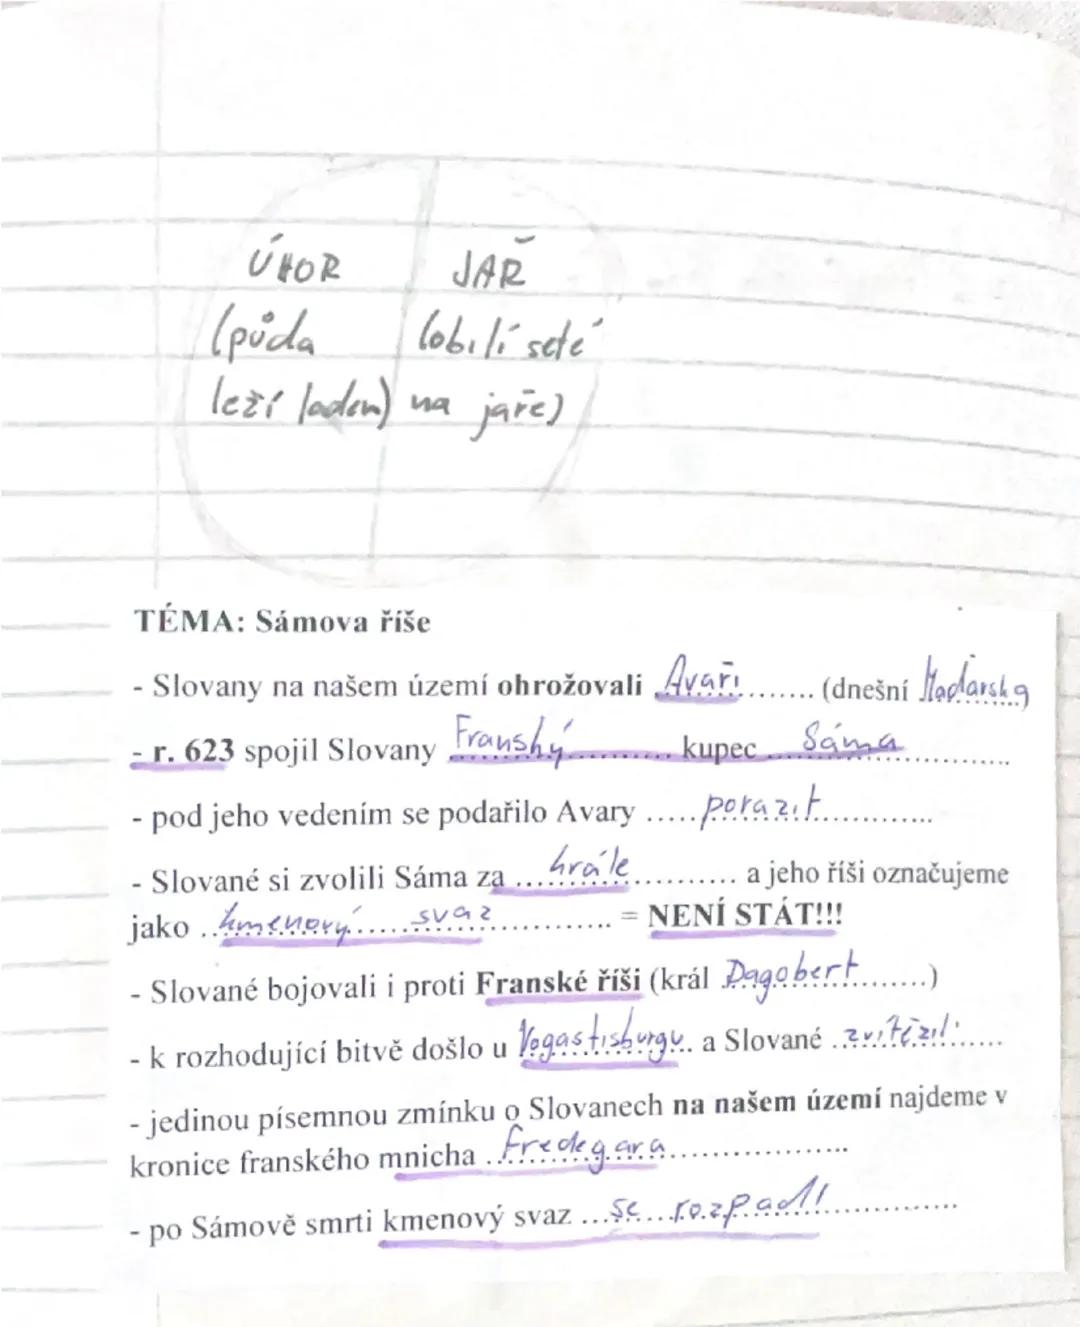 ÚHOR JAŘ
(půda (obilí seté
leží ladem) na jaře)
TÉMA: Sámova říše
- Slovany na našem území ohrožovali Avaři ........ (dnešní Maďarsko
- r. 623 spojil Slovany Franský ........ kupec Sáma ........
- pod jeho vedením se podařilo Avary ..... porazit ........
- Slované si zvolili Sáma za ..... krále ........ a jeho říši označujeme
jako .. kmenový ..... svaz ........ = NENÍ STÁT!!!
- Slované bojovali i proti Franské říši (král Dagobert .......)
- k rozhodující bitvě došlo u Vogastisburgu.. a Slované .. zvítězili .....
- jedinou písemnou zmínku o Slovanech na našem území najdeme v
kronice franského mnicha .. Fredegara ........
- po Sámově smrti kmenový svaz ... se ... rozpadl ........